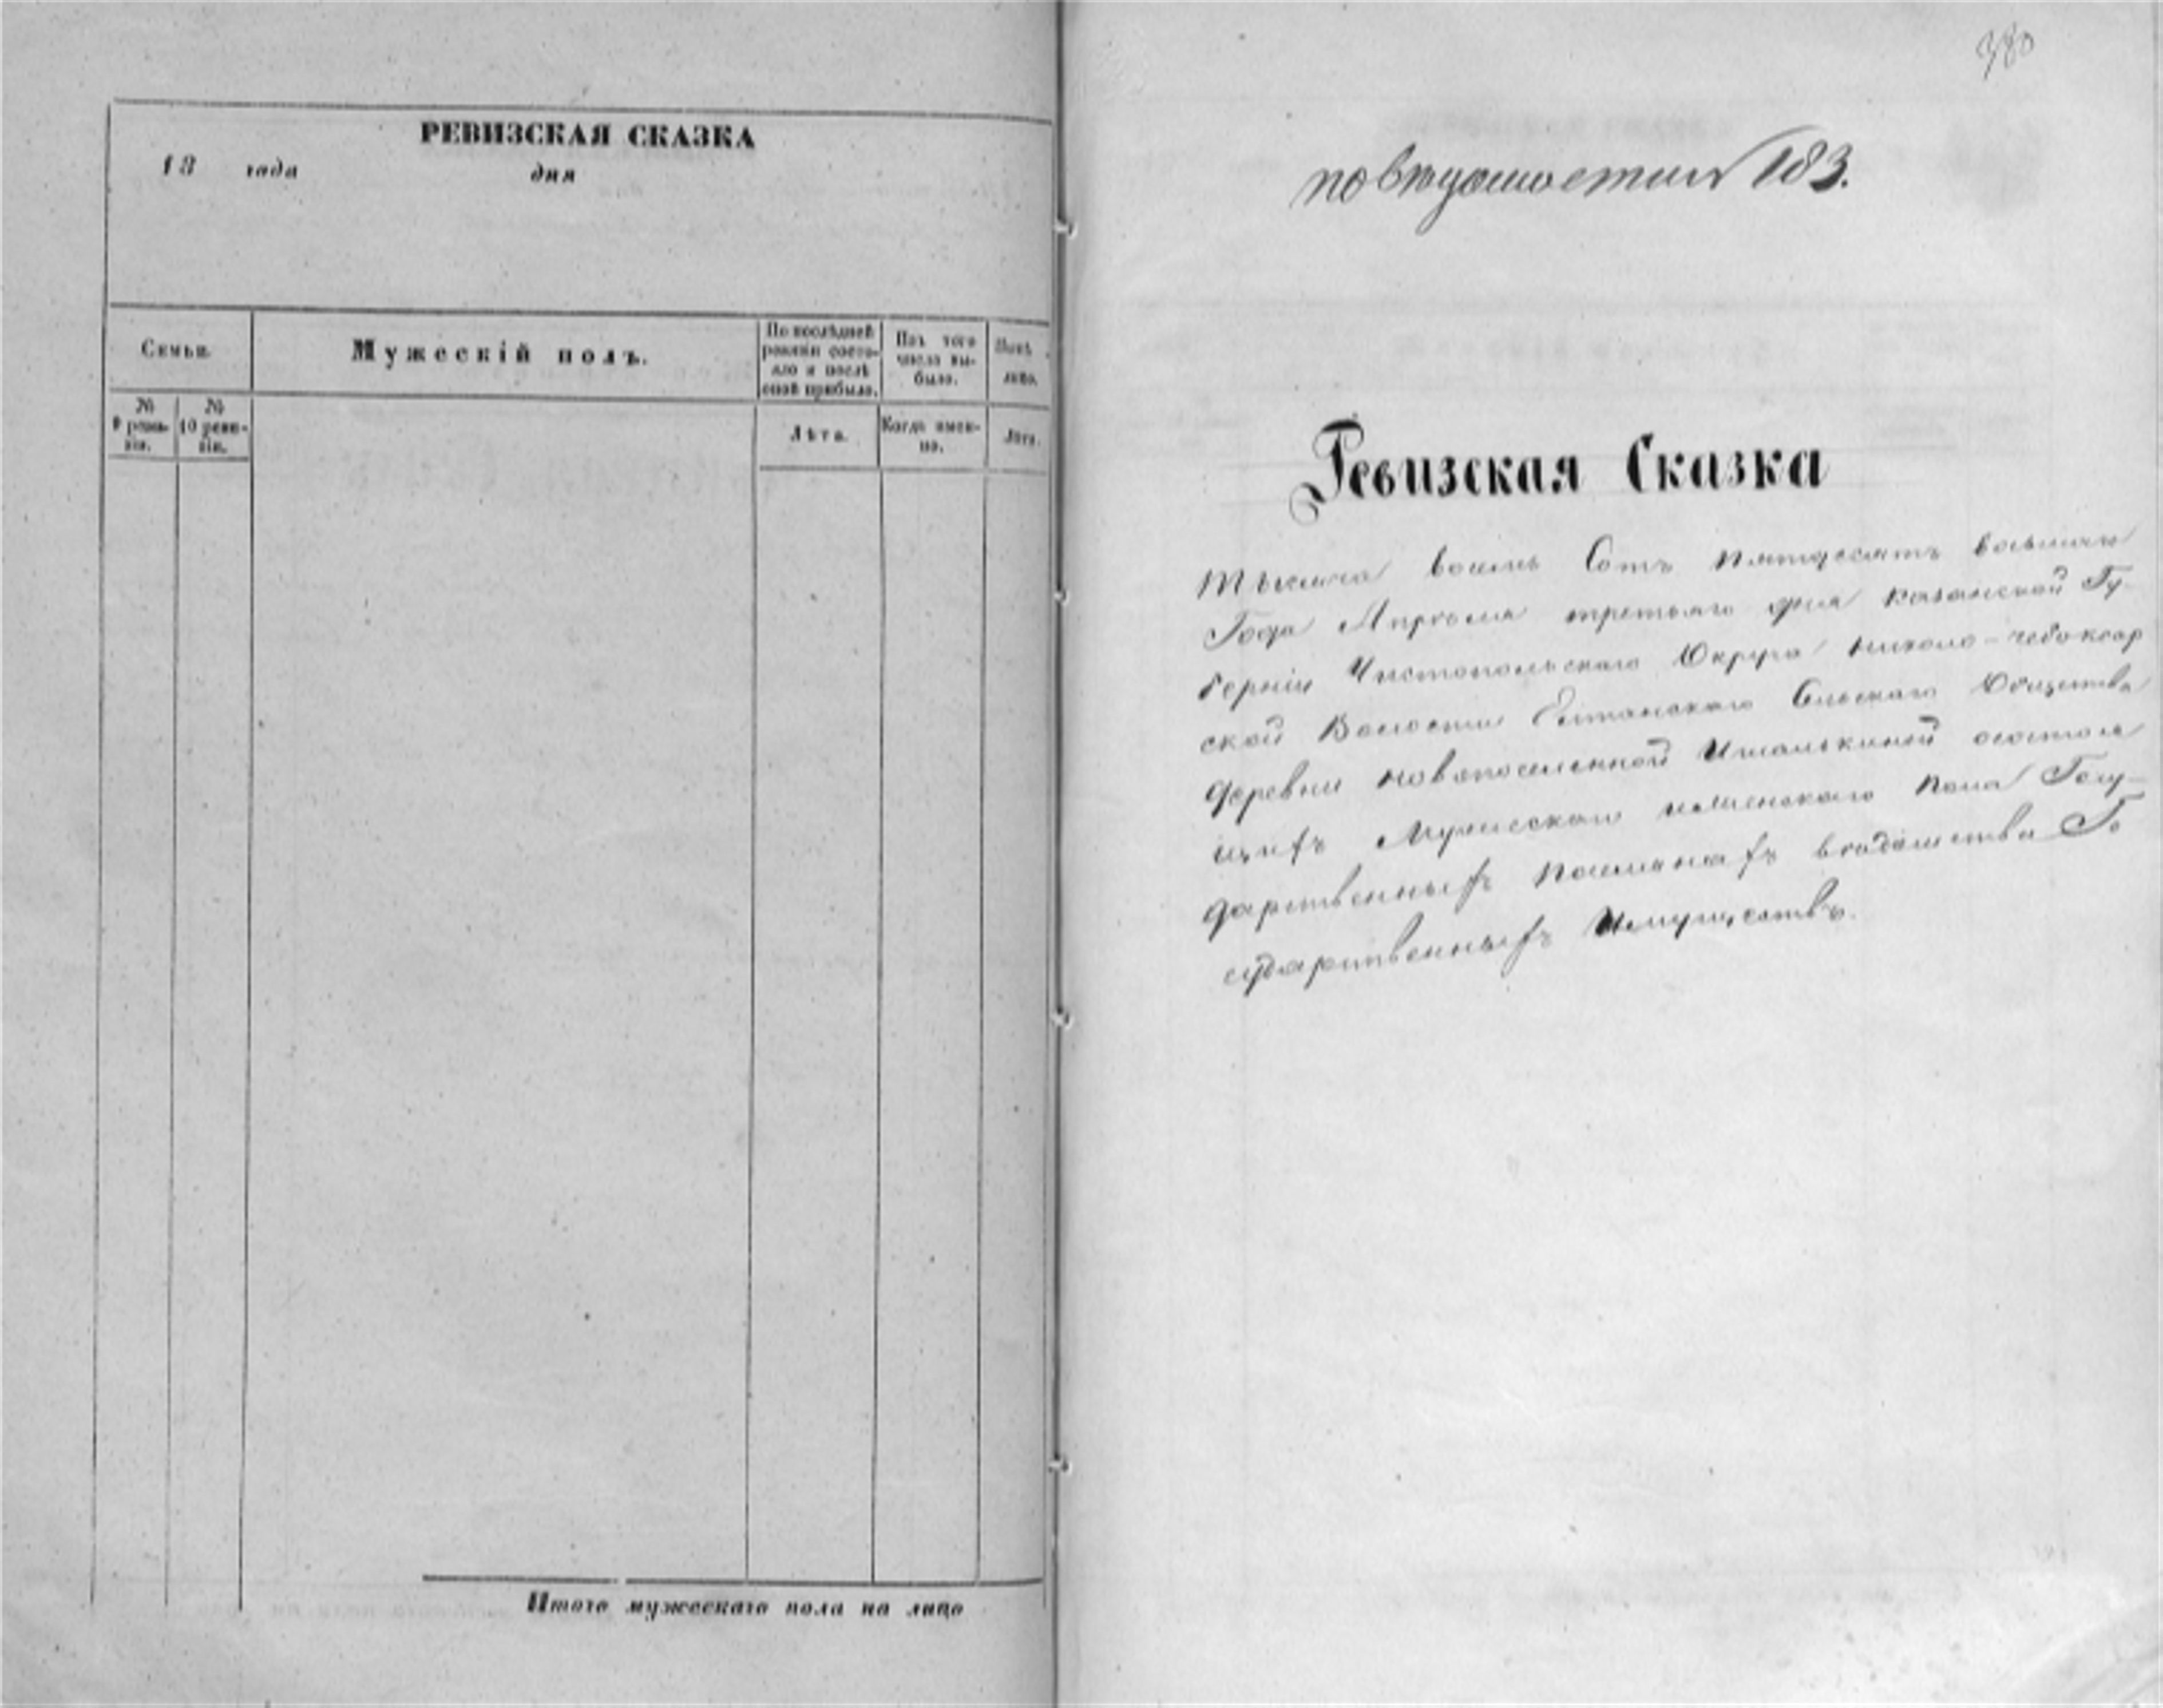 РЕВИЗСКАЯ СКАЗКА
18 года дня
Семьи.
Мужескій полъ.
По послѣдней ревизіи состояло и послѣ оной прибыло.
Изъ того числа выбыло.
Нынѣ на лицо.
№ 9 ревизіи.
№ 10 ревизіи.
Лѣта.
Когда именно.
Лѣта.
Итого мужескаго пола на лицо
380
183.
Ревизская Сказка
Тысяча восемь Сотъ пятдесятъ восьмаго
Года Апрѣля третьяго дня Казанской Гу-
берніи Чистопольскаго Округа Николо-Чебоксар
ской Волости Елтанскаго Сельскаго Общества
деревни новопоселенной Ишалькиной о состоя
щихъ Мужескаго и женскаго пола Госу-
дарственныхъ вѣдомства Го
сударственныхъ Имуществъ.